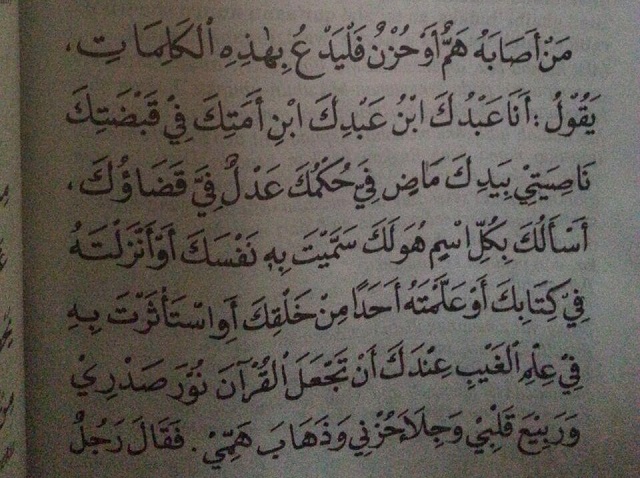 مَنْ أَصَابَهُ هَمٌّ أَوْ حُزْنٌ فَلْيَدْعُ بِهٰذِهِ الْكَلِمَاتِ،
يَقُوْلُ: أَنَا عَبْدُكَ ابْنُ عَبْدِكَ ابْنِ أَمَتِكَ فِيْ قَبْضَتِكَ
نَاصِيَتِيْ بِيَدِكَ مَاضٍ فِيَّ حُكْمُكَ عَدْلٌ فِيَّ قَضَاؤُكَ،
أَسْأَلُكَ بِكُلِّ اسْمٍ هُوَ لَكَ سَمَّيْتَ بِهِ نَفْسَكَ أَوْ أَنْزَلْتَهُ
فِيْ كِتَابِكَ أَوْ عَلَّمْتَهُ أَحَدًا مِنْ خَلْقِكَ أَوِ اسْتَأْثَرْتَ بِهِ
فِيْ عِلْمِ الْغَيْبِ عِنْدَكَ أَنْ تَجْعَلَ الْقُرْآنَ نُوْرَ صَدْرِيْ
وَرَبِيْعَ قَلْبِيْ وَجِلَاءَ حُزْنِي وَذَهَابَ هَمِّيْ. فَقَالَ رَجُلٌ